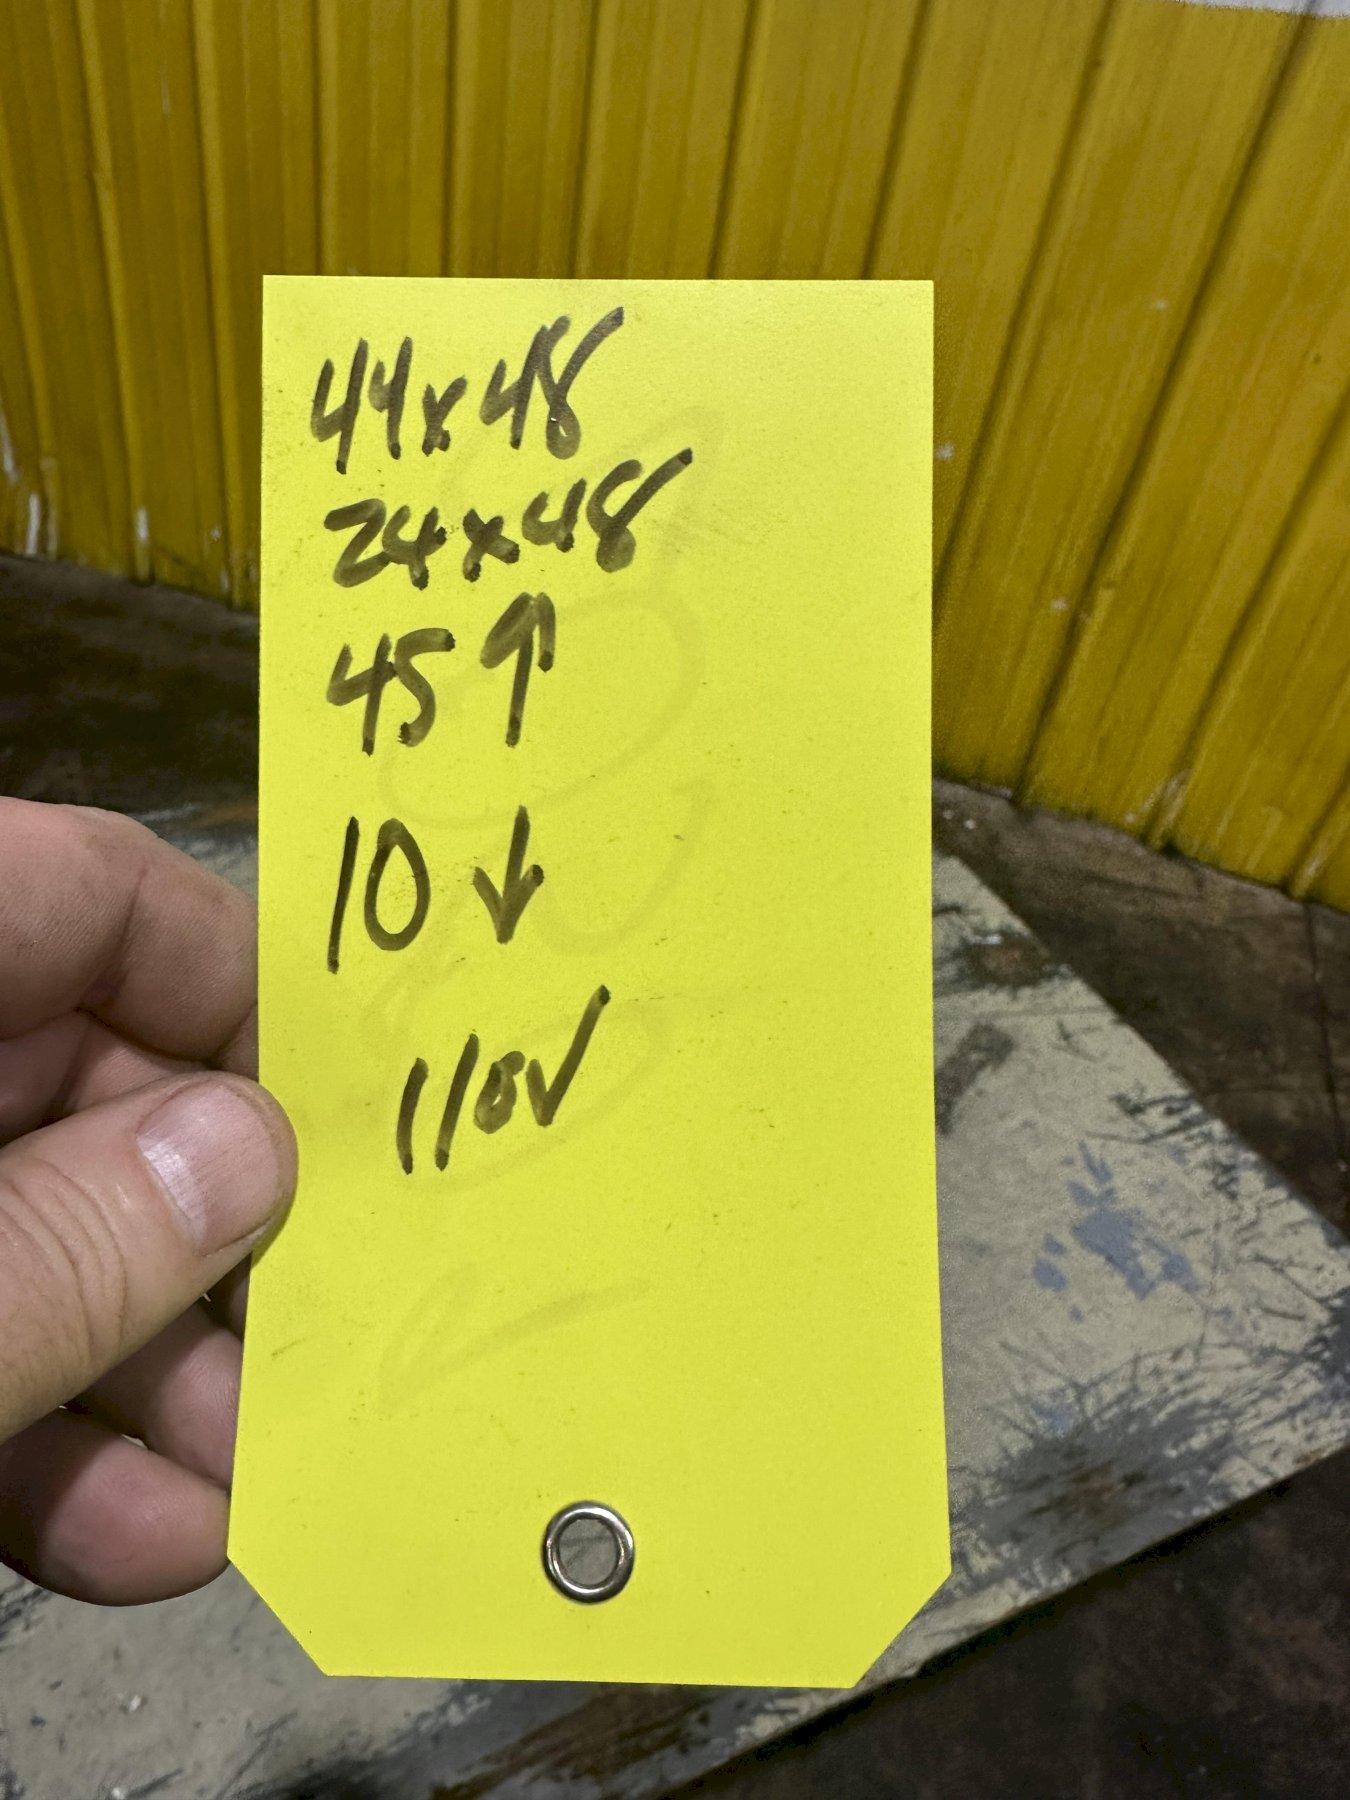 44x48
24x48
45 ↑
10 ↓
110V